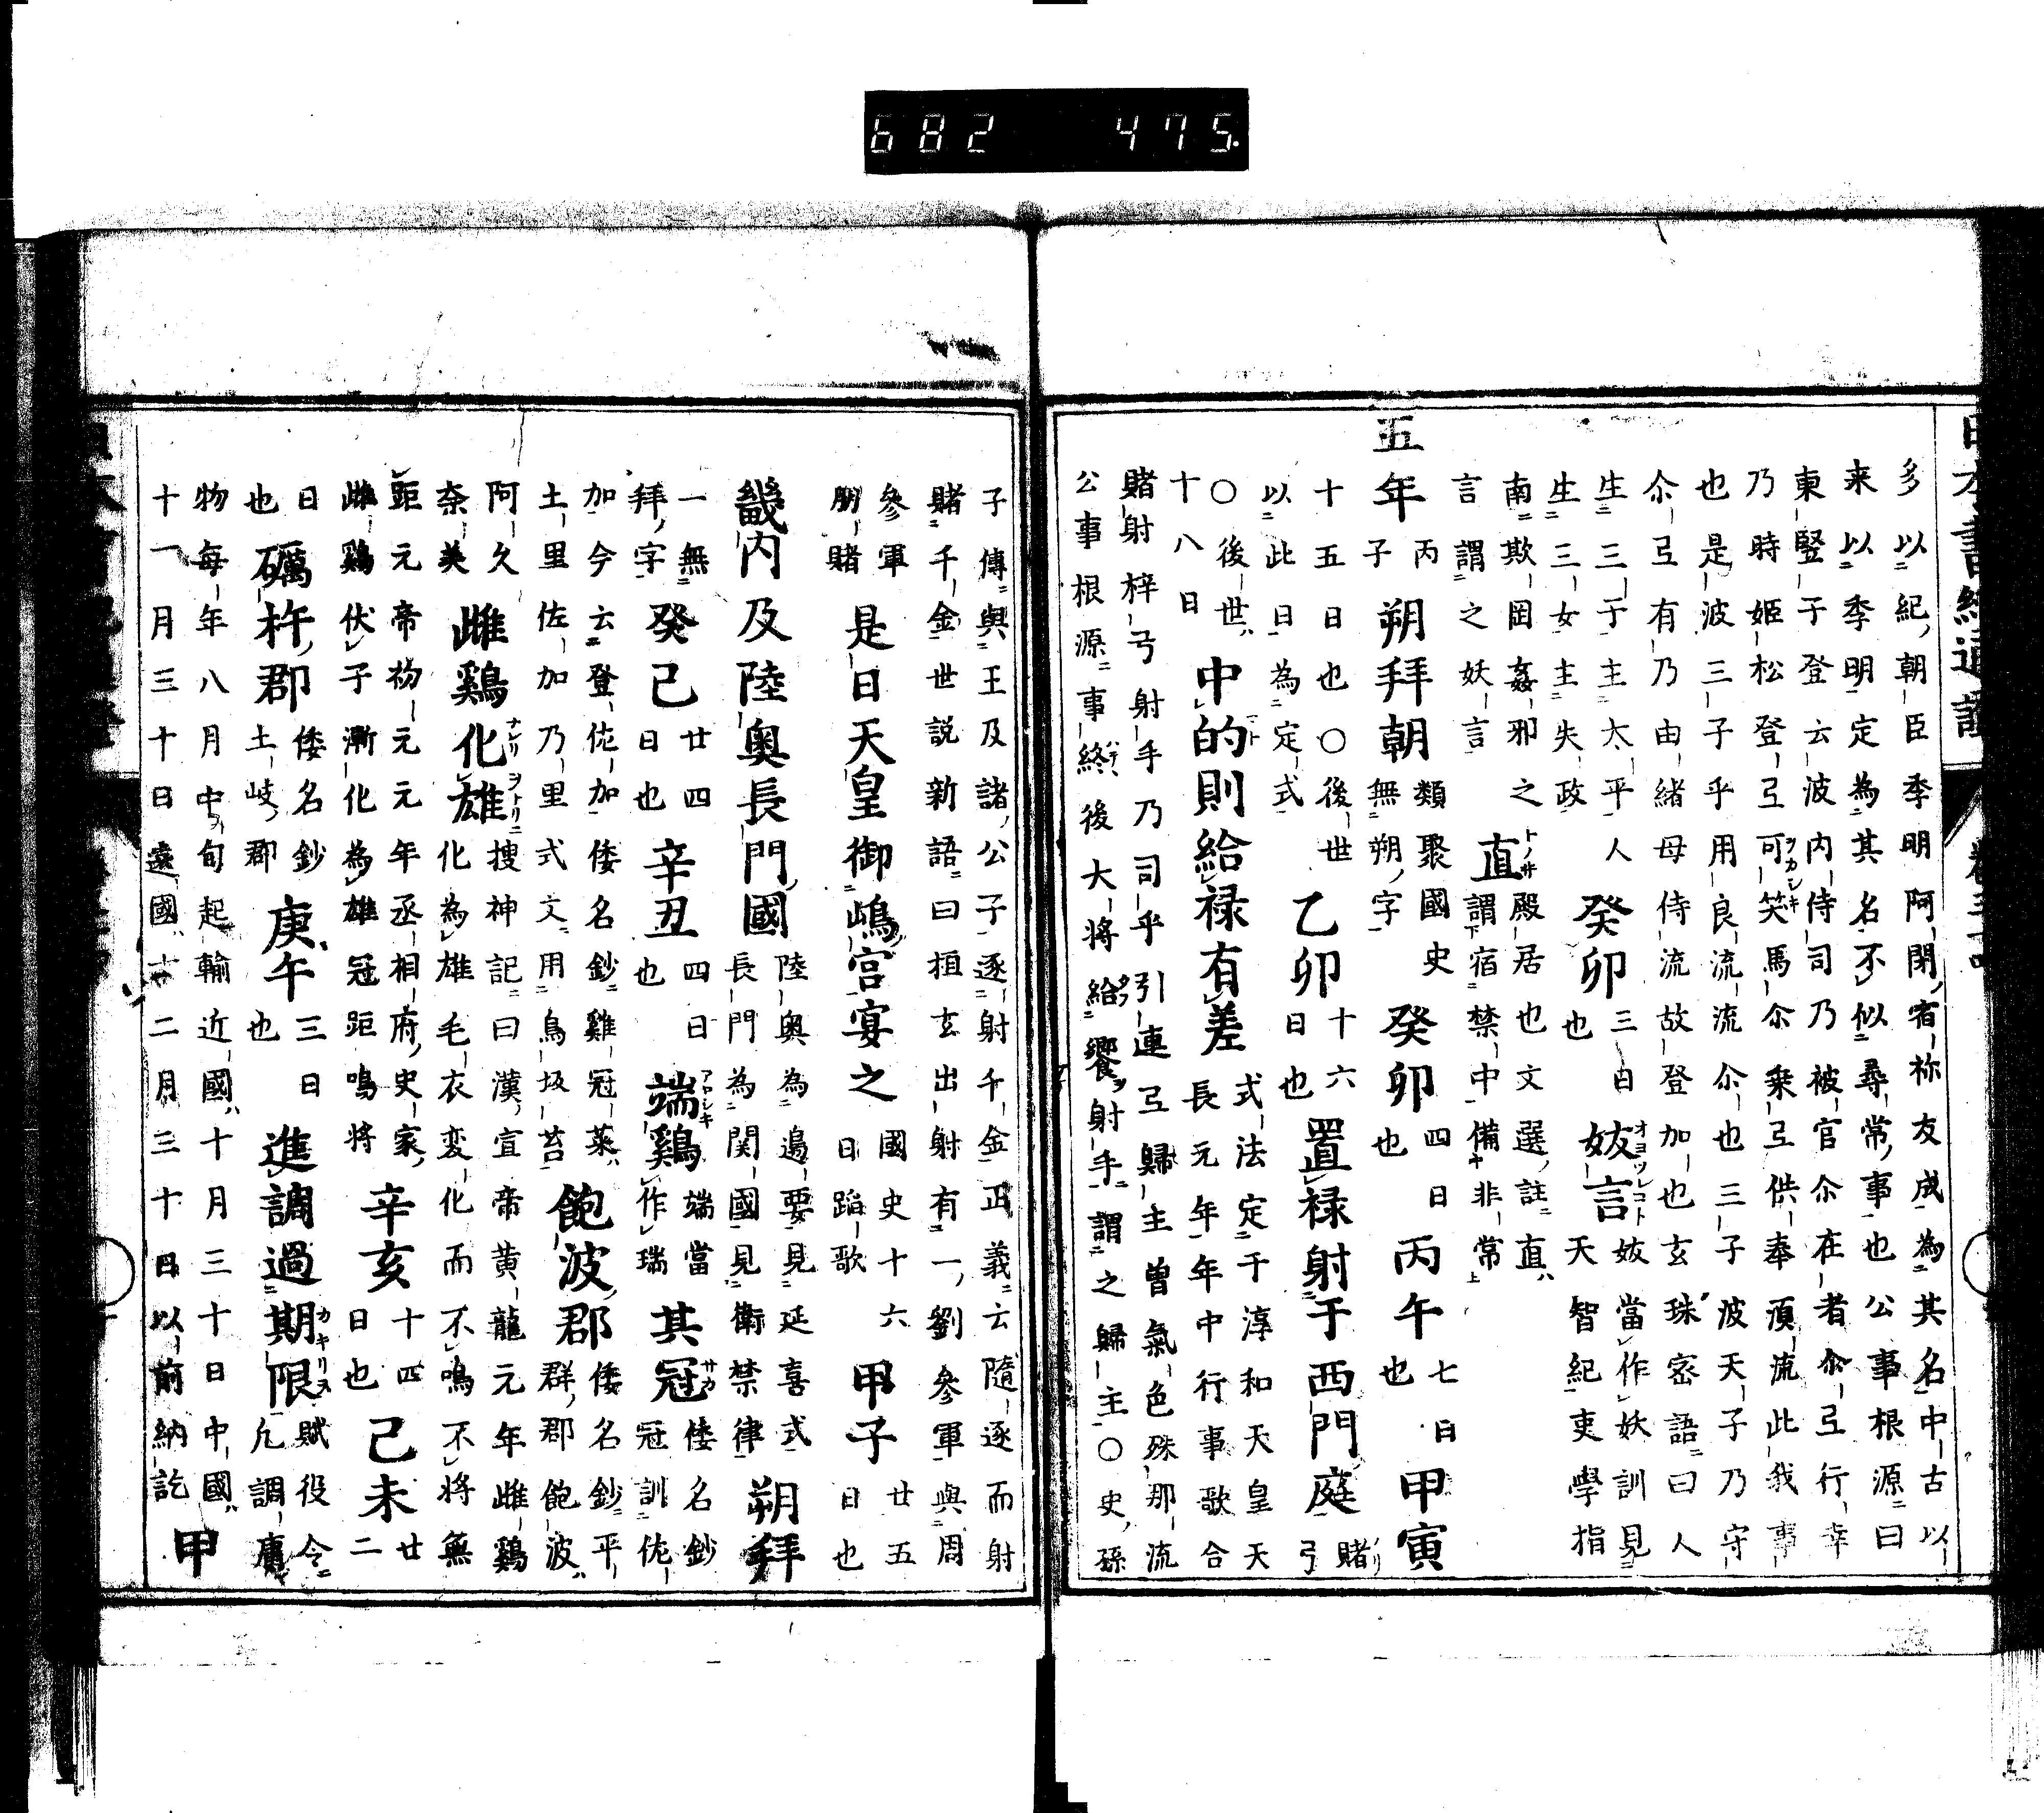 日本書紀通證
多以紀朝臣季明阿閇宿祢友成為其名中古以
来以季明定為其名不似尋常事也公事根源曰
東豎于登云波内侍司乃被官尒在者尒弖行幸
乃時姬松登弖可笑馬尒乗弖供奉湏流此我事
也是波三子乎用良流流尒也三子波天子乃守
尒弖有乃由緒母侍流故登加也玄珠密語曰人
生三于主太平人生三女主失政 癸卯 三日也 妭言 妭當作妖訓見天智紀吏學指
南欺罔姦邪之言謂之妖言 直 殿居也文選註直謂宿禁中備非常
五年 丙子 朔拜朝 類聚國史無朔字 癸卯 四日也 丙午 七日也 甲寅
十五日也○後世以此日為定式 乙卯 十六日也 置禄射于西門庭 賭弓
○後世十八日 中的則給禄有差 式法定于淳和天皇天長元年年中行事歌合
賭射梓弓射手乃司乎引連弖歸主曽氣色殊那流
公事根源事終後大将給饗射手謂之歸主○史孫
子傳與王及諸公子逐射千金正義云隨逐而射
賭千金世説新語曰桓玄出射有一劉參軍與周
參軍朋賭 是日天皇御嶋宮宴之 國史十六日蹈歌 甲子 廿五日也
畿内及陸奥長門國 陸奥為邊要見延喜式長門為関國見衛禁律 朔拜
一無拜字 癸己 廿四日也 辛丑 四日也 端鷄 端當作瑞 其冠 倭名鈔冠訓佐
加今云登佐加倭名鈔雞冠菜土里佐加乃里式文用鳥坂苔 飽波郡 倭名鈔平群郡飽波
阿久奈美 雌鷄化雄 搜神記曰漢宣帝黄龍元年雌鷄化為雄毛衣変化而不鳴不将無
距元帝初元元年丞相府史家雌鷄伏子漸化為雄冠距鳴将 辛亥 十四日也 己未 廿二
日也 礪杵郡 倭名鈔土岐郡 庚午 三日也 進調過期限 賦役令凡調庸
物每年八月中旬起輸近國十月三十日中國十一月三十日遠國十二月三十日以前納訖 甲
682 475.